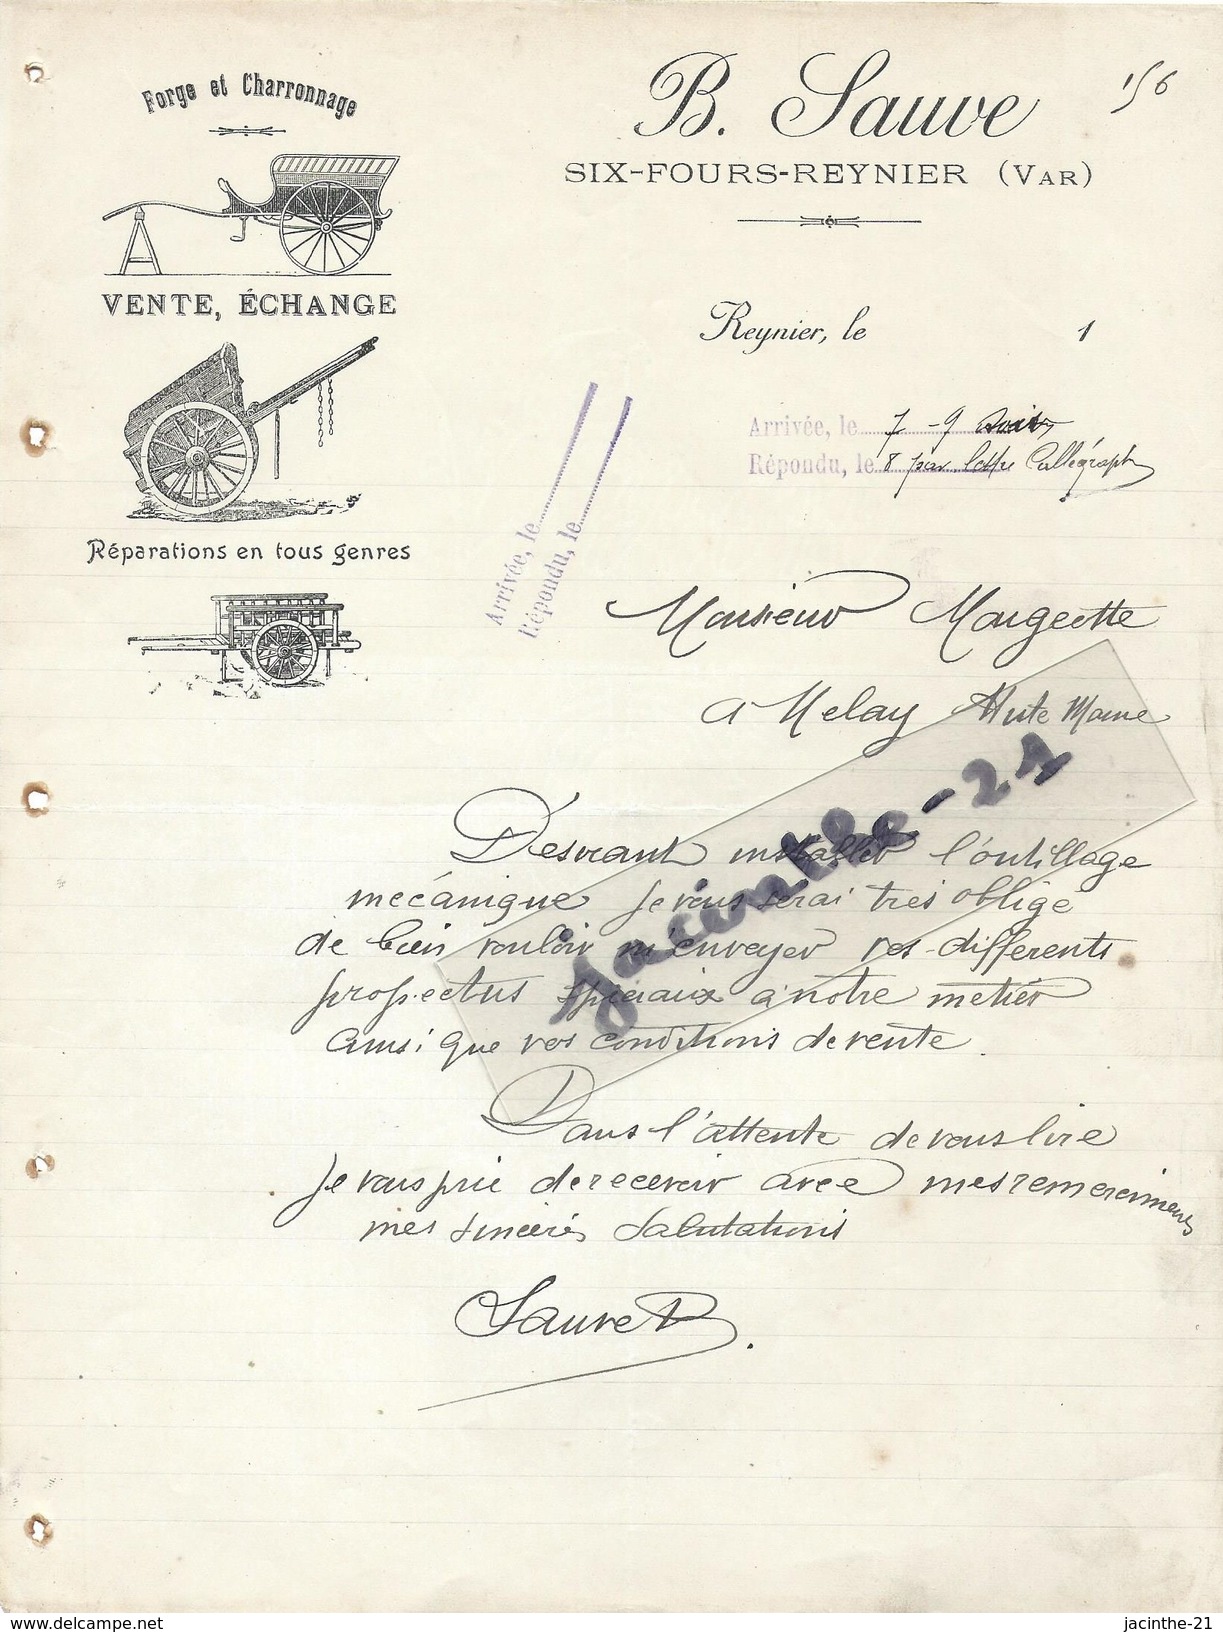 Forge et Charronnage
VENTE, ÉCHANGE
Réparations en tous genres
B. Sauve
156
SIX-FOURS-REYNIER (VAR)
Reynier, le 1
Arrivée, le 7 - 9
Répondu, le 8 par lettre
Arrivée, le
Répondu, le
Monsieur Mougeotte
a Melay Hute Marne
Desireant installer l'outillage
mecánique je vous serai tres obligé
de bien vouloir m'envoyer vos differents
prospectus speciaux a notre metier
ainsi que vos conditions de vente.
Dans l'attente de vous lire
je vous prie de recevoir avec mes remerciments
mes sincères salutations
Sauve B.
Jacinthe-21
www.delcampe.net
jacinthe-21